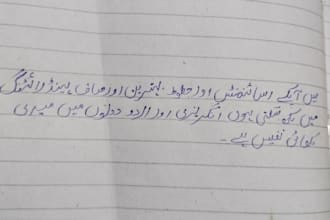 میں آپکے اسائنمنٹس اور خطوط بہترین اور صاف ہینڈ رائٹنگ
میں لکھ سکتی ہوں انگریزی اور اردو دونوں میں میری
لکھائی نفیس ہے۔